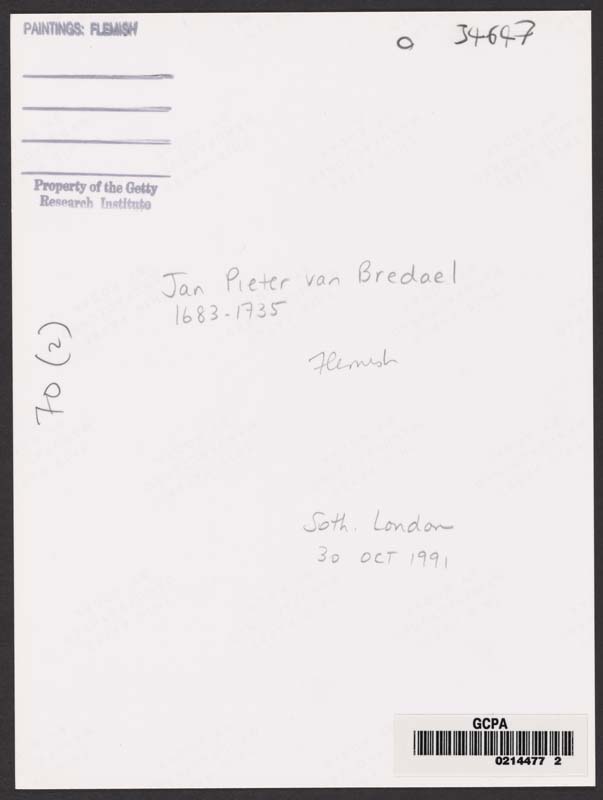 PAINTINGS: FLEMISH
34647
Property of the Getty
Research Institute
Jan Pieter van Bredael
1683-1735
Flemish
70 (2)
Soth. London
30 OCT 1991
GCPA
0214477 2